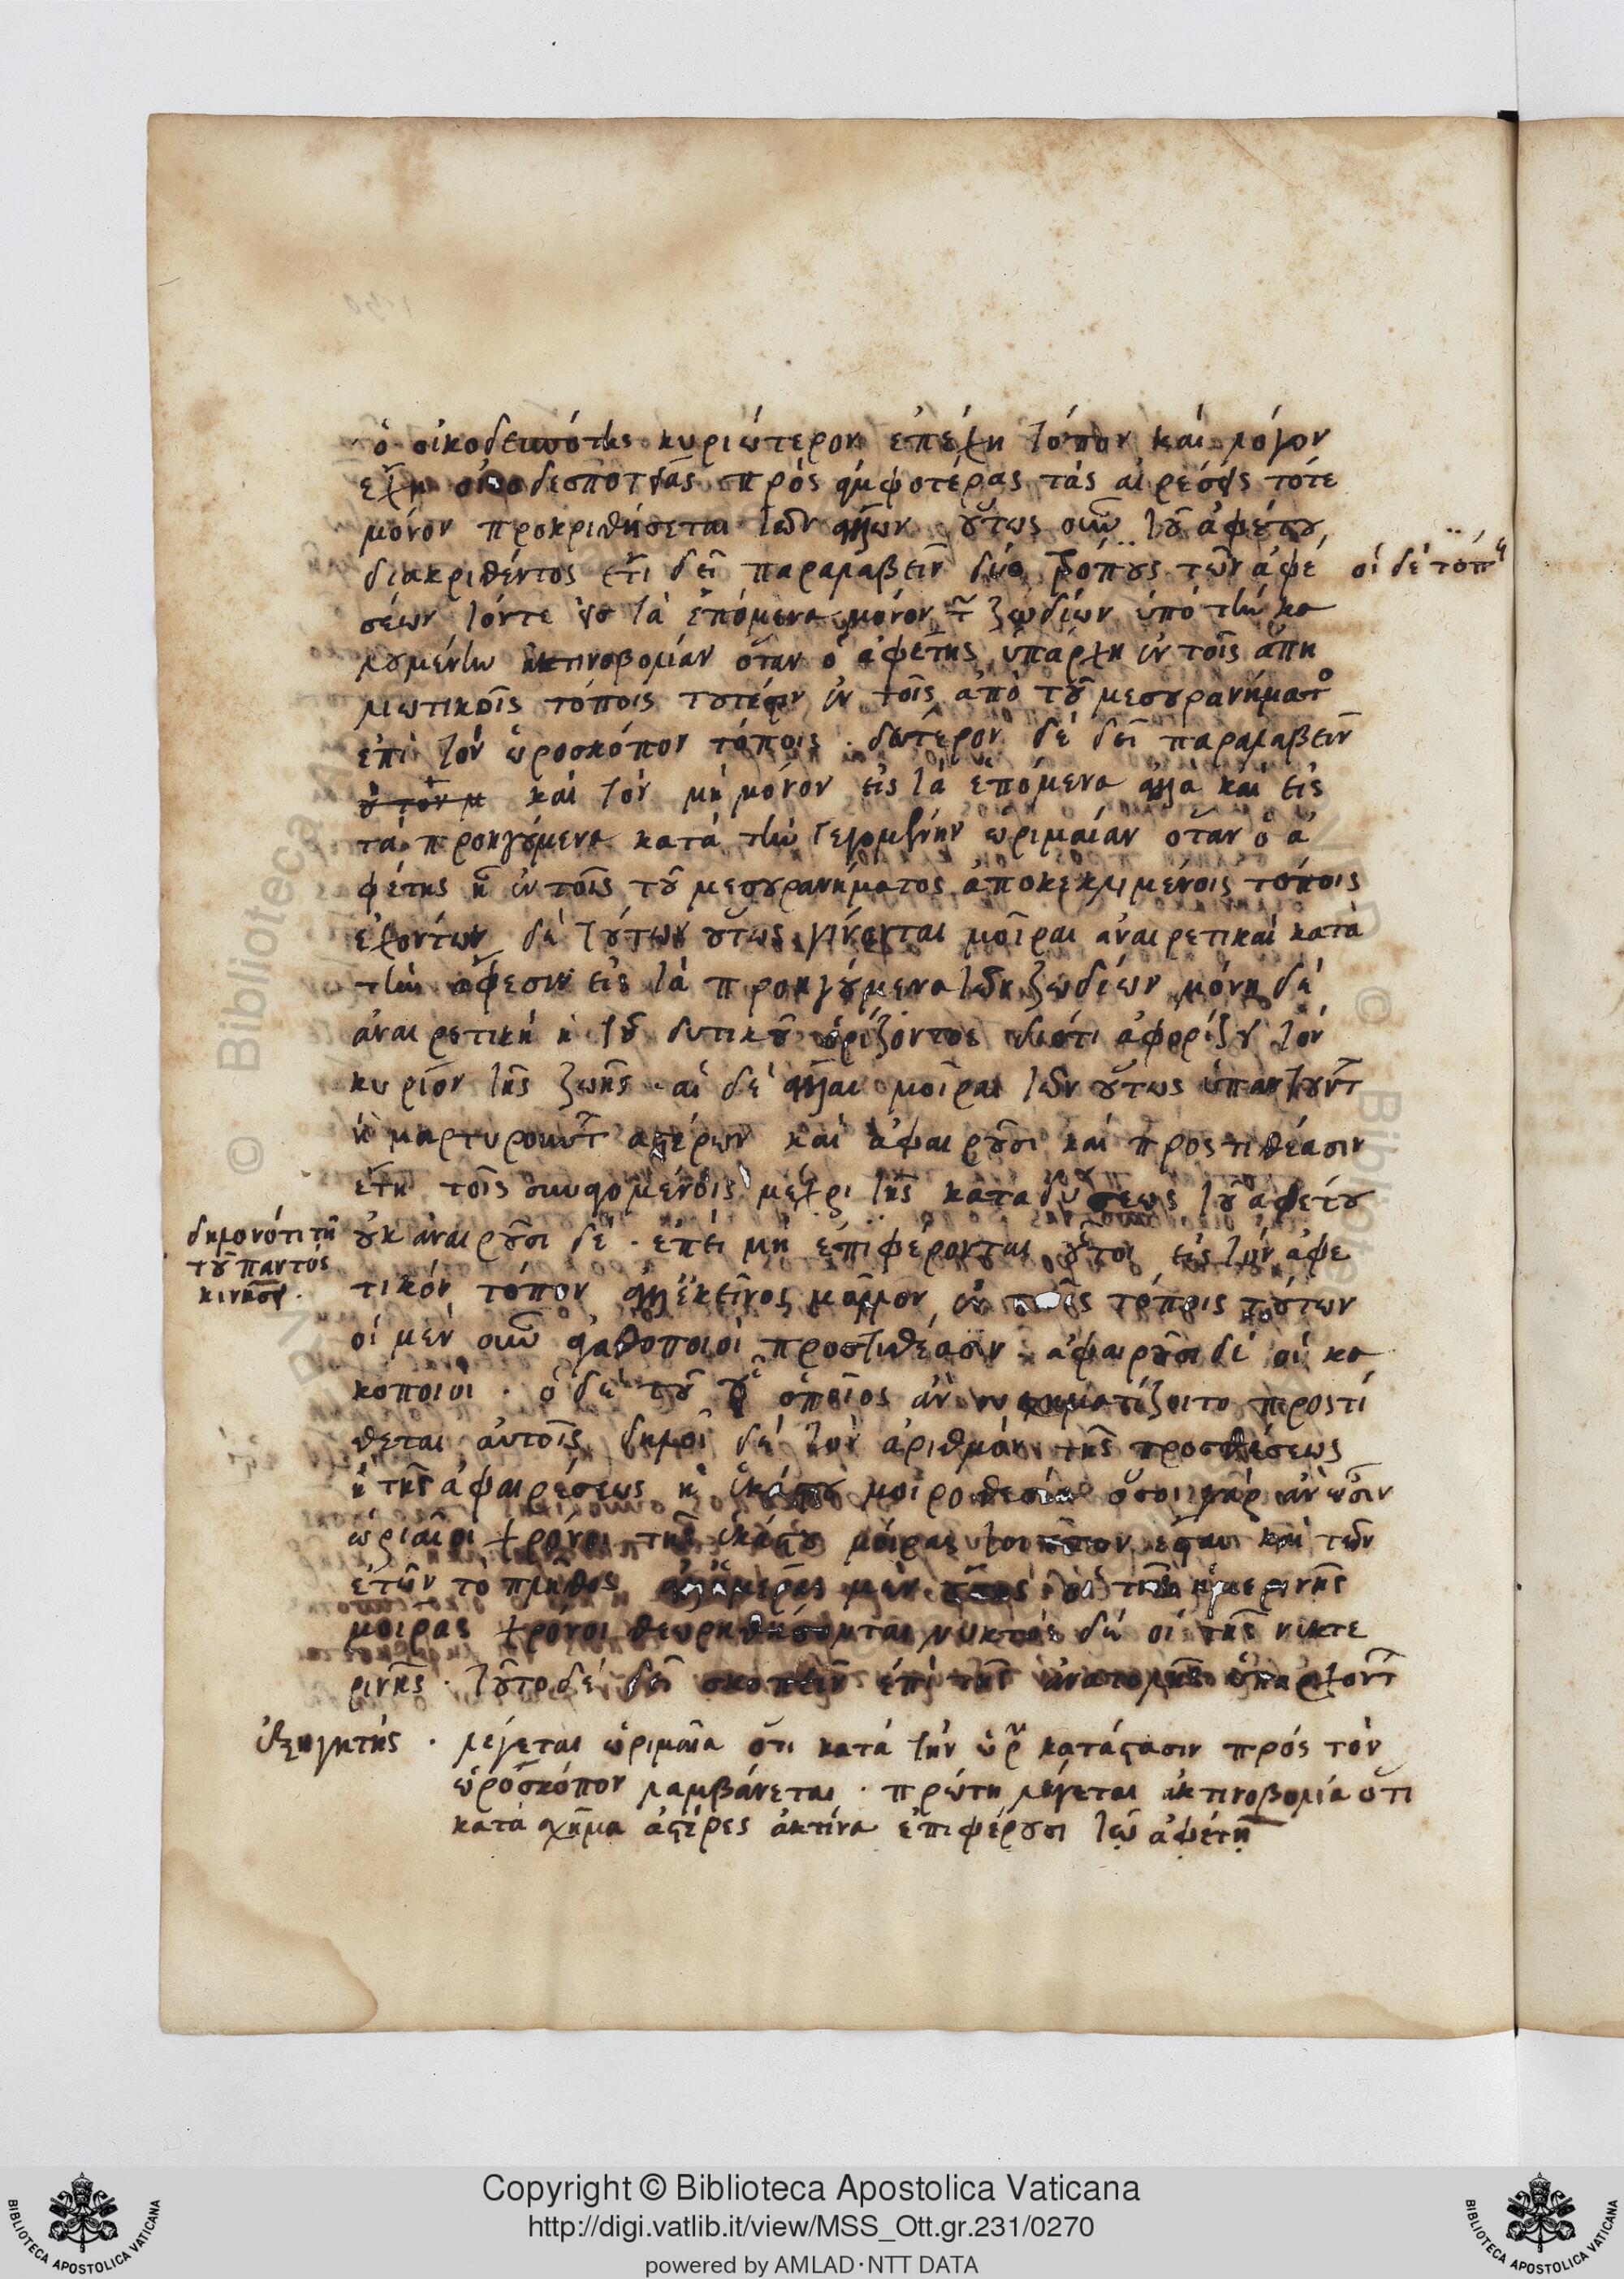 ὁ οἰκοδεσπότης κυριώτερον ἐπέχη τόπον καὶ λόγον
ἔχη οἰκοδεσποτίας πρὸς ἀμφοτέρας τὰς αἱρέσεις τότε
μόνον προκριθήσεται τῶν ἄλλων οὕτως οὖν τοῦ ἀφέτου
διακριθέντος ἔτι δεῖ παραλαβεῖν δύο τρόπους τῶν ἀφέ
οἱ δὲ τόπους
σεων τόν τε εἰς τὰ ἑπόμενα μόνον τῶν ζωδίων ὑπὸ τὴν κα
λουμένην ἀκτινοβολίαν ὅταν ὁ ἀφέτης ὑπάρχη ἐν τοῖς ἀπη
λιωτικοῖς τόποις τουτέστιν ἐν τοῖς ἀπὸ τοῦ μεσουρανήματος
ἐπὶ τὸν ὡροσκόπον τόποις · δεύτερον δὲ δεῖ παραλαβεῖν
καὶ τὸν μὴ μόνον εἰς τὰ ἑπόμενα ἀλλὰ καὶ εἰς
τὰ προηγούμενα κατὰ τὴν λεγομένην ὡριμαίαν ὅταν ὁ ἀ
φέτης ᾖ ἐν τοῖς τοῦ μεσουρανήματος ἀποκεκλιμένοις τόποις
ἐχόντων δὲ τούτων οὕτως γίνονται μοῖραι ἀναιρετικαὶ κατὰ
τὴν ἄφεσιν εἰς τὰ προηγούμενα τῶν ζωδίων μόνη δὲ
ἀναιρετικὴ ἡ τοῦ δυτικοῦ ὁρίζοντος διότι ἀφορίζει τὸν
κύριον τῆς ζωῆς · αἱ δὲ ἄλλαι μοῖραι τῶν οὕτως ὑπαντούντων
ἢ μαρτυρούντων ἀστέρων καὶ ἀφαιροῦσι καὶ προστιθέασιν
ἔτη τοῖς συναγομένοις μέχρι τῆς καταδύσεως τοῦ ἀφέτου
οὐκ ἀναιροῦσι δέ · ἐπεὶ μὴ ἐπιφέρονται οὗτοι εἰς τὸν ἀφε
δηλονότι τῇ
τοῦ παντὸς
κινήσει ·
τικὸν τόπον ἀλλ' ἐκεῖνος μᾶλλον ἐν τοῖς τόποις τούτων
οἱ μὲν οὖν ἀγαθοποιοὶ προστιθέασιν · ἀφαιροῦσι δὲ οἱ κα
κοποιοί · ὁ δὲ τοῦ ☿ ὁποῖος ἂν συσχηματίζοιτο προστί
θεται αὐτοῖς δηλοῖ δὲ τὸν ἀριθμὸν τῆς προσθέσεως
ἢ τῆς ἀφαιρέσεως ἡ ἑκάστου μοιροθεσία ὅσοι γὰρ ἂν ὦσιν
ὡριαῖοι χρόνοι τῆς ἑκάστου μοίρας τοιοῦτον ἔσται καὶ τῶν
ἐτῶν τὸ πλῆθος ἀλλ' ἡμέρας μὲν οὔσης οἱ τῆς ἡμερινῆς
μοίρας χρόνοι θεωρηθήσονται νυκτὸς δὲ οἱ τῆς νυκτε
ρινῆς · τοῦτο δὲ δεῖ σκοπεῖν ἐπὶ τῆς ἀνατολῆς ὑπαρχόντων
ἐξηγητής · λέγεται ὡριμαία ὅτι κατὰ τὴν ὡρ κατάστασιν πρὸς τὸν
ὡροσκόπον λαμβάνεται · πρώτη λέγεται ἀκτινοβολία ὅτι
κατὰ σχῆμα ἀστέρες ἀκτῖνα ἐπιφέρουσι τῶ ἀφέτη
© Biblioteca
© Biblioteca
Copyright © Biblioteca Apostolica Vaticana
http://digi.vatlib.it/view/MSS_Ott.gr.231/0270
powered by AMLAD·NTT DATA
BIBLIOTECA APOSTOLICA VATICANA
BIBLIOTECA APOSTOLICA VATICANA